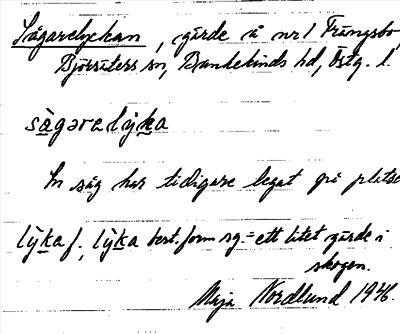 Sågarelyckan, gärde å nr 1 Frängsbo,
Björsäters sn, Bankekinds hd, Östg. l.
sågarelỳka
En såg har tidigare legat på platse
lỳka f., lỳka best. form sg. = ett litet gärde i
skogen.
Maja Nordlund 1946.